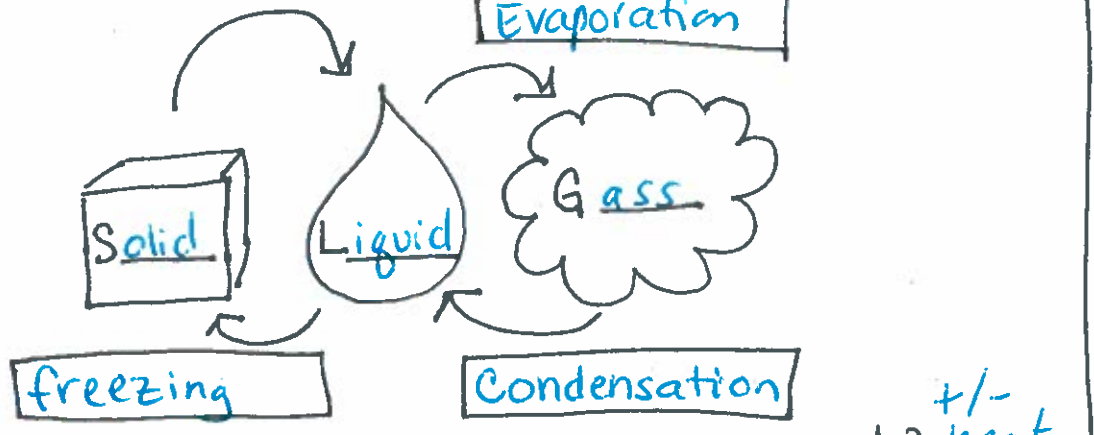 Evaporation
Solid
Liquid
Gass
freezing
Condensation
+/-
heat